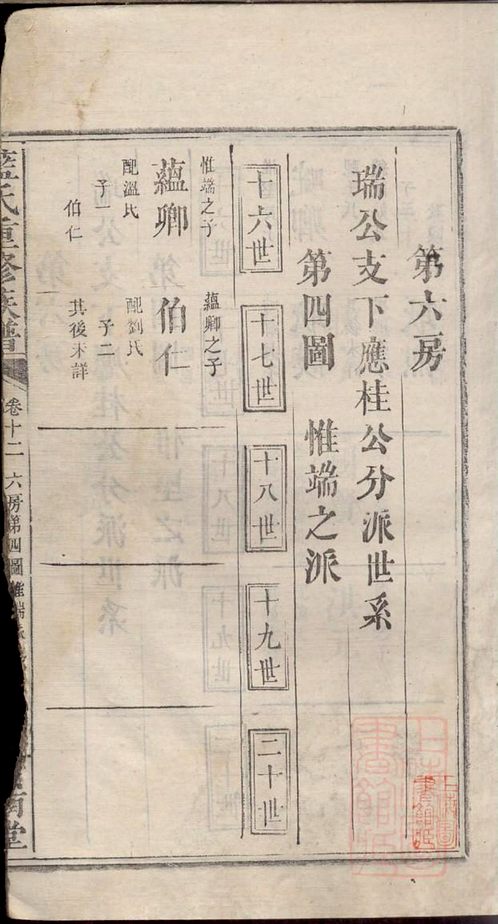 第六房
瑞公支下應桂公分派世系
第四圖 惟端之派
十六世
十七世
十八世
十九世
二十世
惟端之子
蘊卿
配溫氏
子一
伯仁
蘊卿之子
伯仁
配劉氏
子二
其後未詳
氏重修族譜
卷十二 六房第四圖惟端
堂